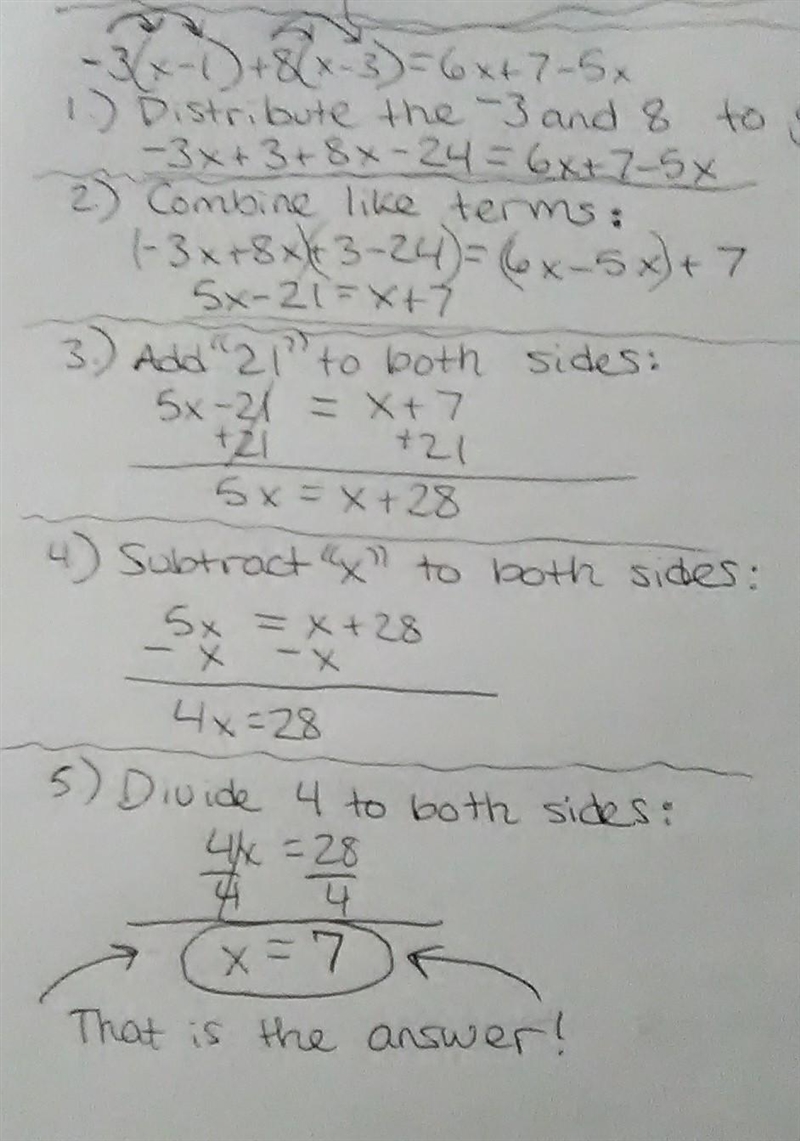 -3(x-1)+8(x-3)=6x+7-5x
1.) Distribute the -3 and 8 to
-3x+3+8x-24=6x+7-5x
2.) Combine like terms:
(-3x+8x)(+3-24)=(6x-5x)+7
5x-21=x+7
3.) Add "21" to both sides:
5x-21 = x+7
+21 +21
5x = x+28
4) Subtract "x" to both sides:
5x = x+28
- x - x
4x=28
5) Divide 4 to both sides:
4x = 28
4 4
x = 7
That is the answer!